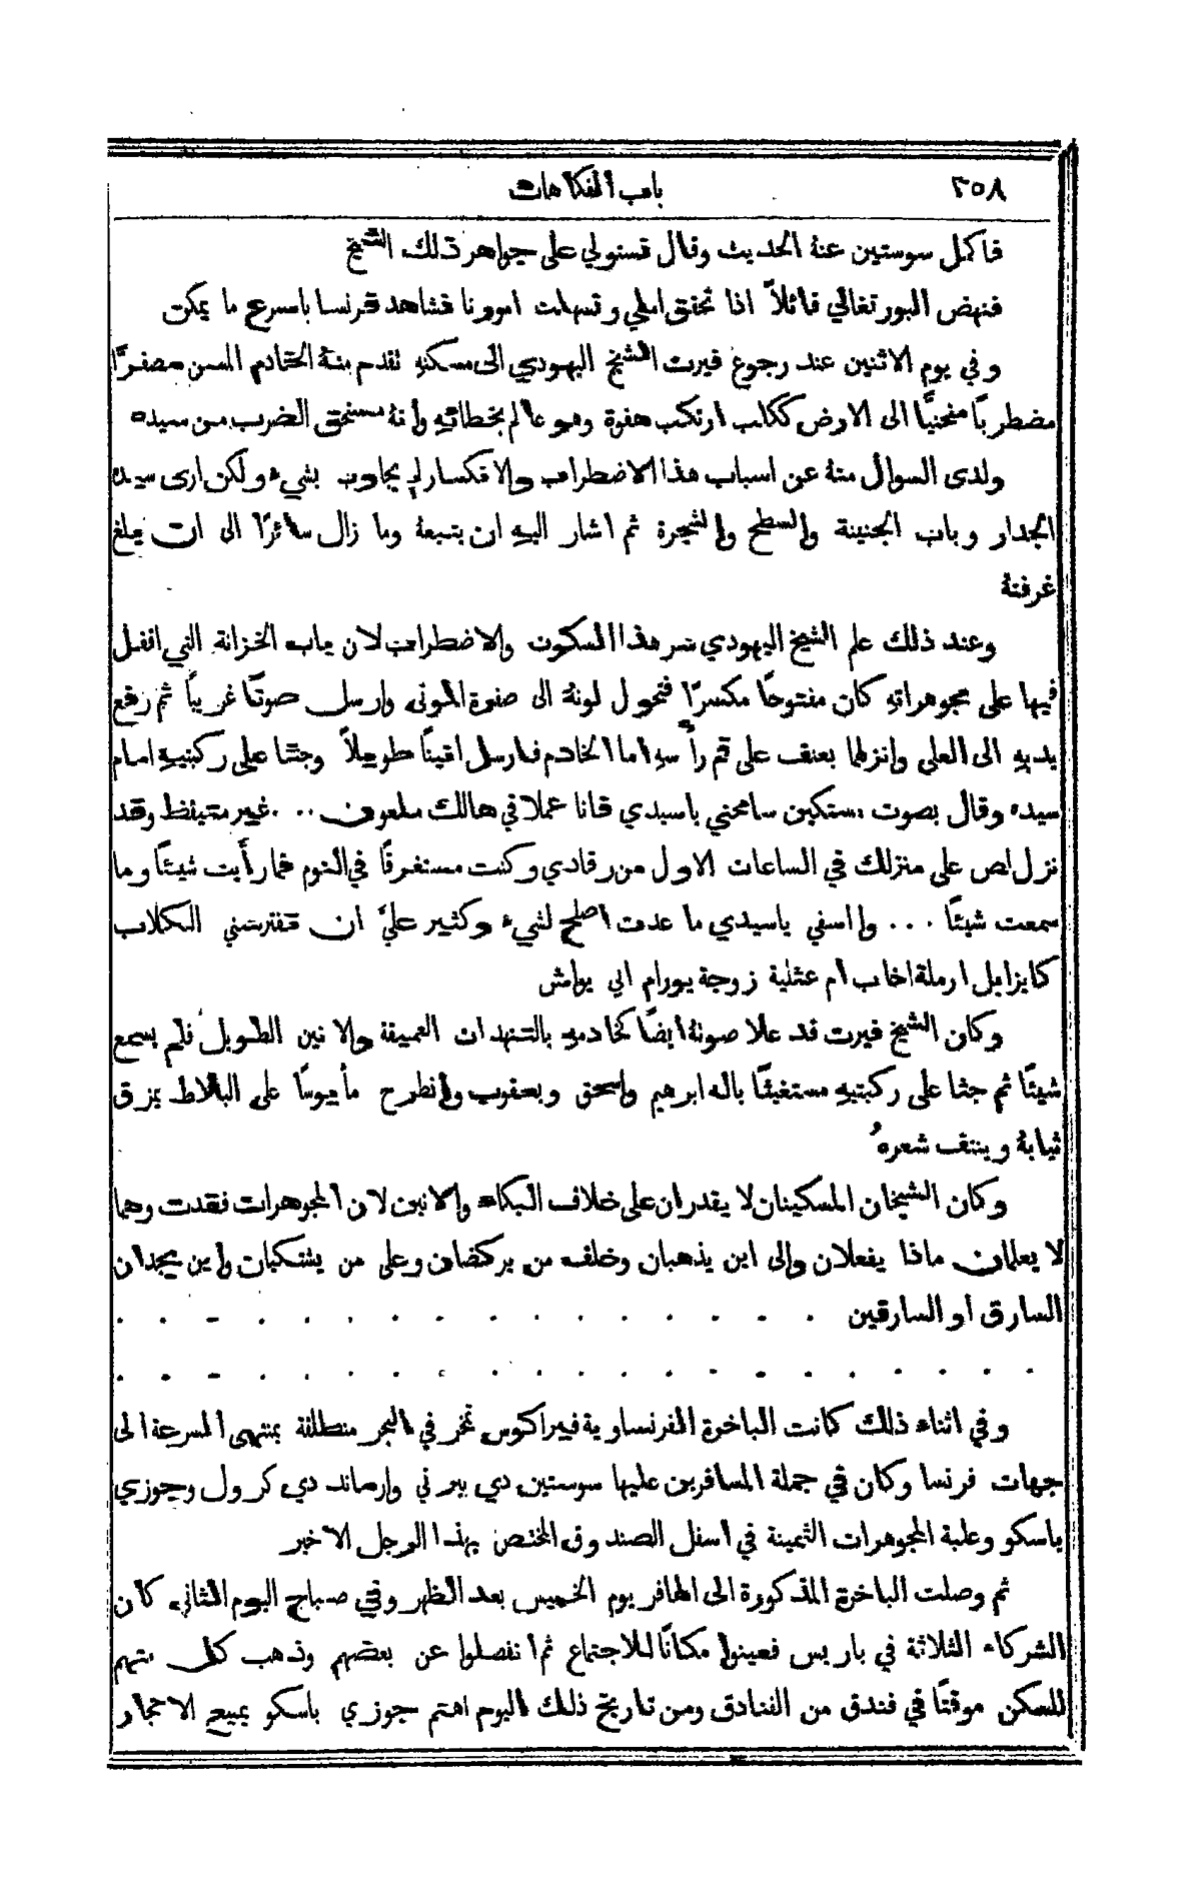 ٢٥٨
باب الفكاهات
فاكمل سوستين عنهُ الحديث وقال فنستولي على جواهر ذلك الشيخ
فنهض البورتغالي قائلاً اذا تحقق املي وتسهلت امورنا فنشاهد فرنسا باسرع ما يمكن
وفي يوم الاثنين عند رجوع فيرت الشيخ اليهودي الى مسكنهِ تقدم منهُ الخادم المسن مصفرًّا
مضطربًا منحنيًا الى الارض ككلب ارتكب هفوة وهو عالم بخطائهِ وانهُ مستحق الضرب من سيده
ولدى السوال منهُ عن اسباب هذا الاضطراب والانكسار لم يجاوب بشيء ولكن ارى سيده
الجدار وباب الجنينة والسطح والشجرة ثم اشار اليهِ ان يتبعهُ وما زال سائرًا الى ان بلغ
غرفتهُ
وعند ذلك علم الشيخ اليهودي سر هذا السكوت والاضطراب لان باب الخزانة التي اقفل
فيها على مجوهراتهِ كان مفتوحًا مكسرًا فتحول لونهُ الى صفرة الموتى وارسل صوتًا غريبًا ثم رفع
يديهِ الى العلى وانزلهما بعنف على قم رأسهِ اما الخادم فارسل انينًا طويلاً وجثا على ركبتيهِ امام
سيده وقال بصوت مستكين سامحني ياسيدي فانا عملا في هالك ملعون . . . غير متيقظ وقد
نزل لص على منزلك في الساعات الاول من رقادي وكنت مستغرقًا في النوم فما رأيت شيئًا وما
سمعت شيئًا . . . وا اسفي ياسيدي ما عدت اصلح لشيء وكثير عليَّ ان تفترسني الكلاب
كايزابل ارملة اخاب ام عثلية زوجة يورام ابي يواش
وكان الشيخ فيرت قد علا صوتهُ ايضًا كخادمهِ بالتنهدات العميقة والانين الطويل فلم يسمع
شيئًا ثم جثا على ركبتيهِ مستغيثًا باله ابرهيم واسحق ويعقوب وانطرح مأيوسًا على البلاط يمزق
ثيابهُ وينتف شعرهُ
وكان الشيخان المسكينان لا يقدران على خلاف البكاء والانين لان المجوهرات فقدت وهما
لا يعلمان ماذا يفعلان والى اين يذهبان وخلف من يركضان وعلى من يشتكيان واين يجدان
السارق او السارقين . . . . . . . . . . . . . . . .
. . . . . . . . . . . . . . . . . . . . .
وفي اثناء ذلك كانت الباخرة الفرنساوية فيراكوس تمخر في البحر منطلقة بمنتهى السرعة الى
جهات فرنسا وكان في جملة المسافرين عليها سوستين دي بيرني وارماند دي كرول وجوزي
باسكو وعلبة المجوهرات الثمينة في اسفل الصندوق المختص بهذا الرجل الاخير
ثم وصلت الباخرة المذكورة الى الهافر يوم الخميس بعد الظهر وفي صباح اليوم الثاني كان
الشركاء الثلاثة في باريس فعينوا مكانًا للاجتماع ثم انفصلوا عن بعضهم وذهب كل منهم
للسكن موقتًا في فندق من الفنادق ومن تاريخ ذلك اليوم اهتم جوزي باسكو بمبيع الاحجار